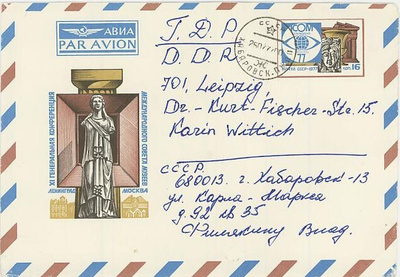 АВИА
PAR AVION
Г.Д.Р
D.D.R
701, Leipzig,
Dr.-Kurt-Fischer-Str. 15.
Karin Wittich
ICOM
77
ПОЧТА СССР·1977
16
ХАБАРОВСК
XI ГЕНЕРАЛЬНАЯ КОНФЕРЕНЦИЯ
МЕЖДУНАРОДНОГО СОВЕТА МУЗЕЕВ
ЛЕНИНГРАД
МОСКВА
СССР
680013. г. Хабаровск-13
ул. Карла-Маркса
д. 92 кв 35
Влад.